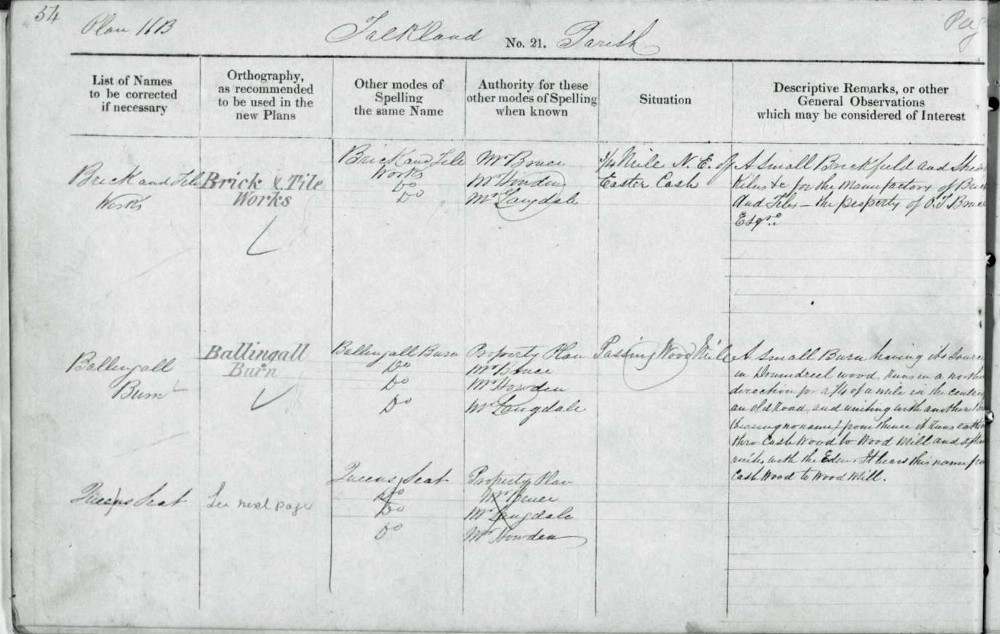 54
Plan 11B
Falkland No. 21. Parish
Pag
List of Names
to be corrected
if necessary
Orthography,
as recommended
to be used in the
new Plans
Other modes of
Spelling
the same Name
Authority for these
other modes of Spelling
when known
Situation
Descriptive Remarks, or other
General Observations
which may be considered of Interest
Brick and Tile
Works
Brick & Tile
Works
Brick and Tile
Works
Do
Do
Mr Bruce
Mr Howden
Mr Langdale
Mile N.E. of
Easter Cash
A small Brickfield and
Kilns &c for the manufactory of
and Tiles - the property of O.T. Bruce
Esqre.
Ballingall
Burn
Ballingall
Burn
Ballingall Burn
Do
Do
Do
Property Plan
Mr Bruce
Mr Howden
Mr Langdale
Passing Wood Mill
A small Burn having its source
in Drumdreel wood, runs in a
direction for a 1/4 of a mile in the
an old Road, and uniting with another
(having no name) from thence it runs
thro Cash Wood to Wood Mill and
unites with the Eden. It bears this name
Cash Wood to Wood Mill.
Queens Seat
See next page
Queens Seat
Do
Do
Do
Property Plan
Mr Bruce
Mr Langdale
Mr Howden